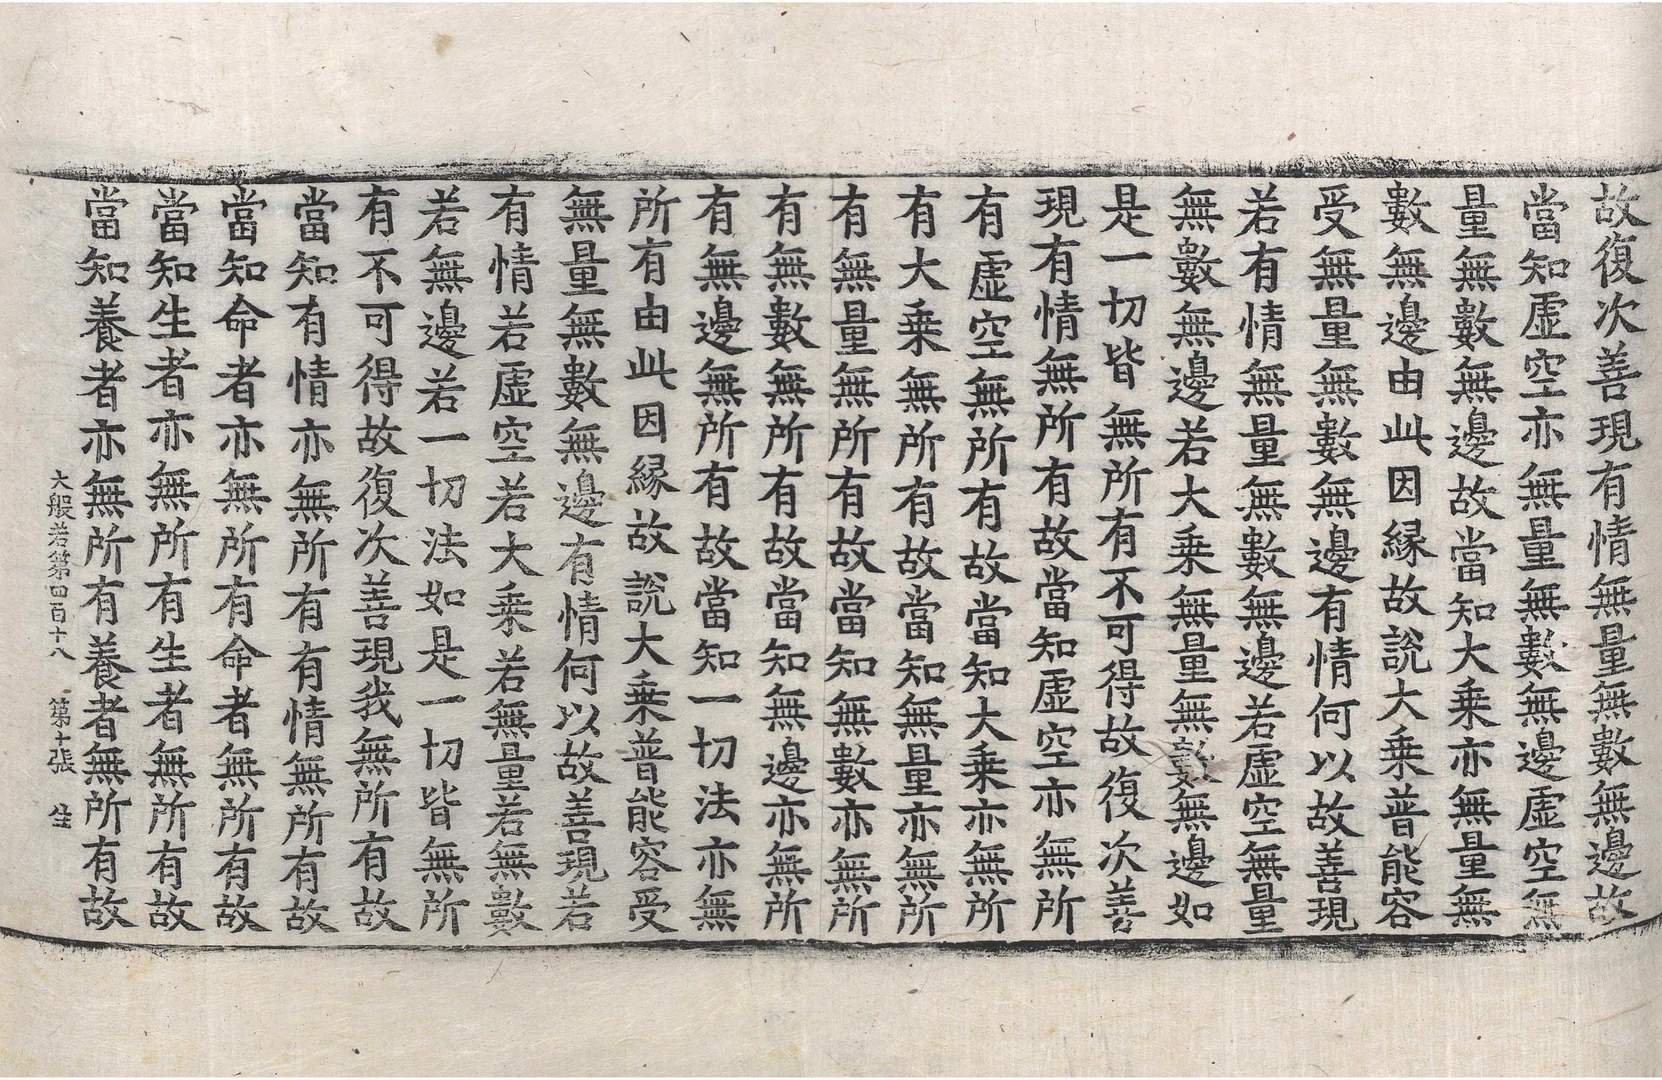 故復次善現有情無量無數無邊故
當知虛空亦無量無數無邊虛空無
量無數無邊故當知大乘亦無量無
數無邊由此因緣故說大乘普能容
受無量無數無邊有情何以故善現
若有情無量無數無邊若虛空無量
無數無邊若大乘無量無數無邊如
是一切皆無所有不可得故復次善
現有情無所有故當知虛空亦無所
有虛空無所有故當知大乘亦無所
有大乘無所有故當知無量亦無所
有無量無所有故當知無數亦無所
有無數無所有故當知無邊亦無所
有無邊無所有故當知一切法亦無
所有由此因緣故說大乘普能容受
無量無數無邊有情何以故善現若
有情若虛空若大乘若無量若無數
若無邊若一切法如是一切皆無所
有不可得故復次善現我無所有故
當知有情亦無所有有情無所有故
當知命者亦無所有命者無所有故
當知生者亦無所有生者無所有故
當知養者亦無所有養者無所有故
大般若第四百十八 第十張 生